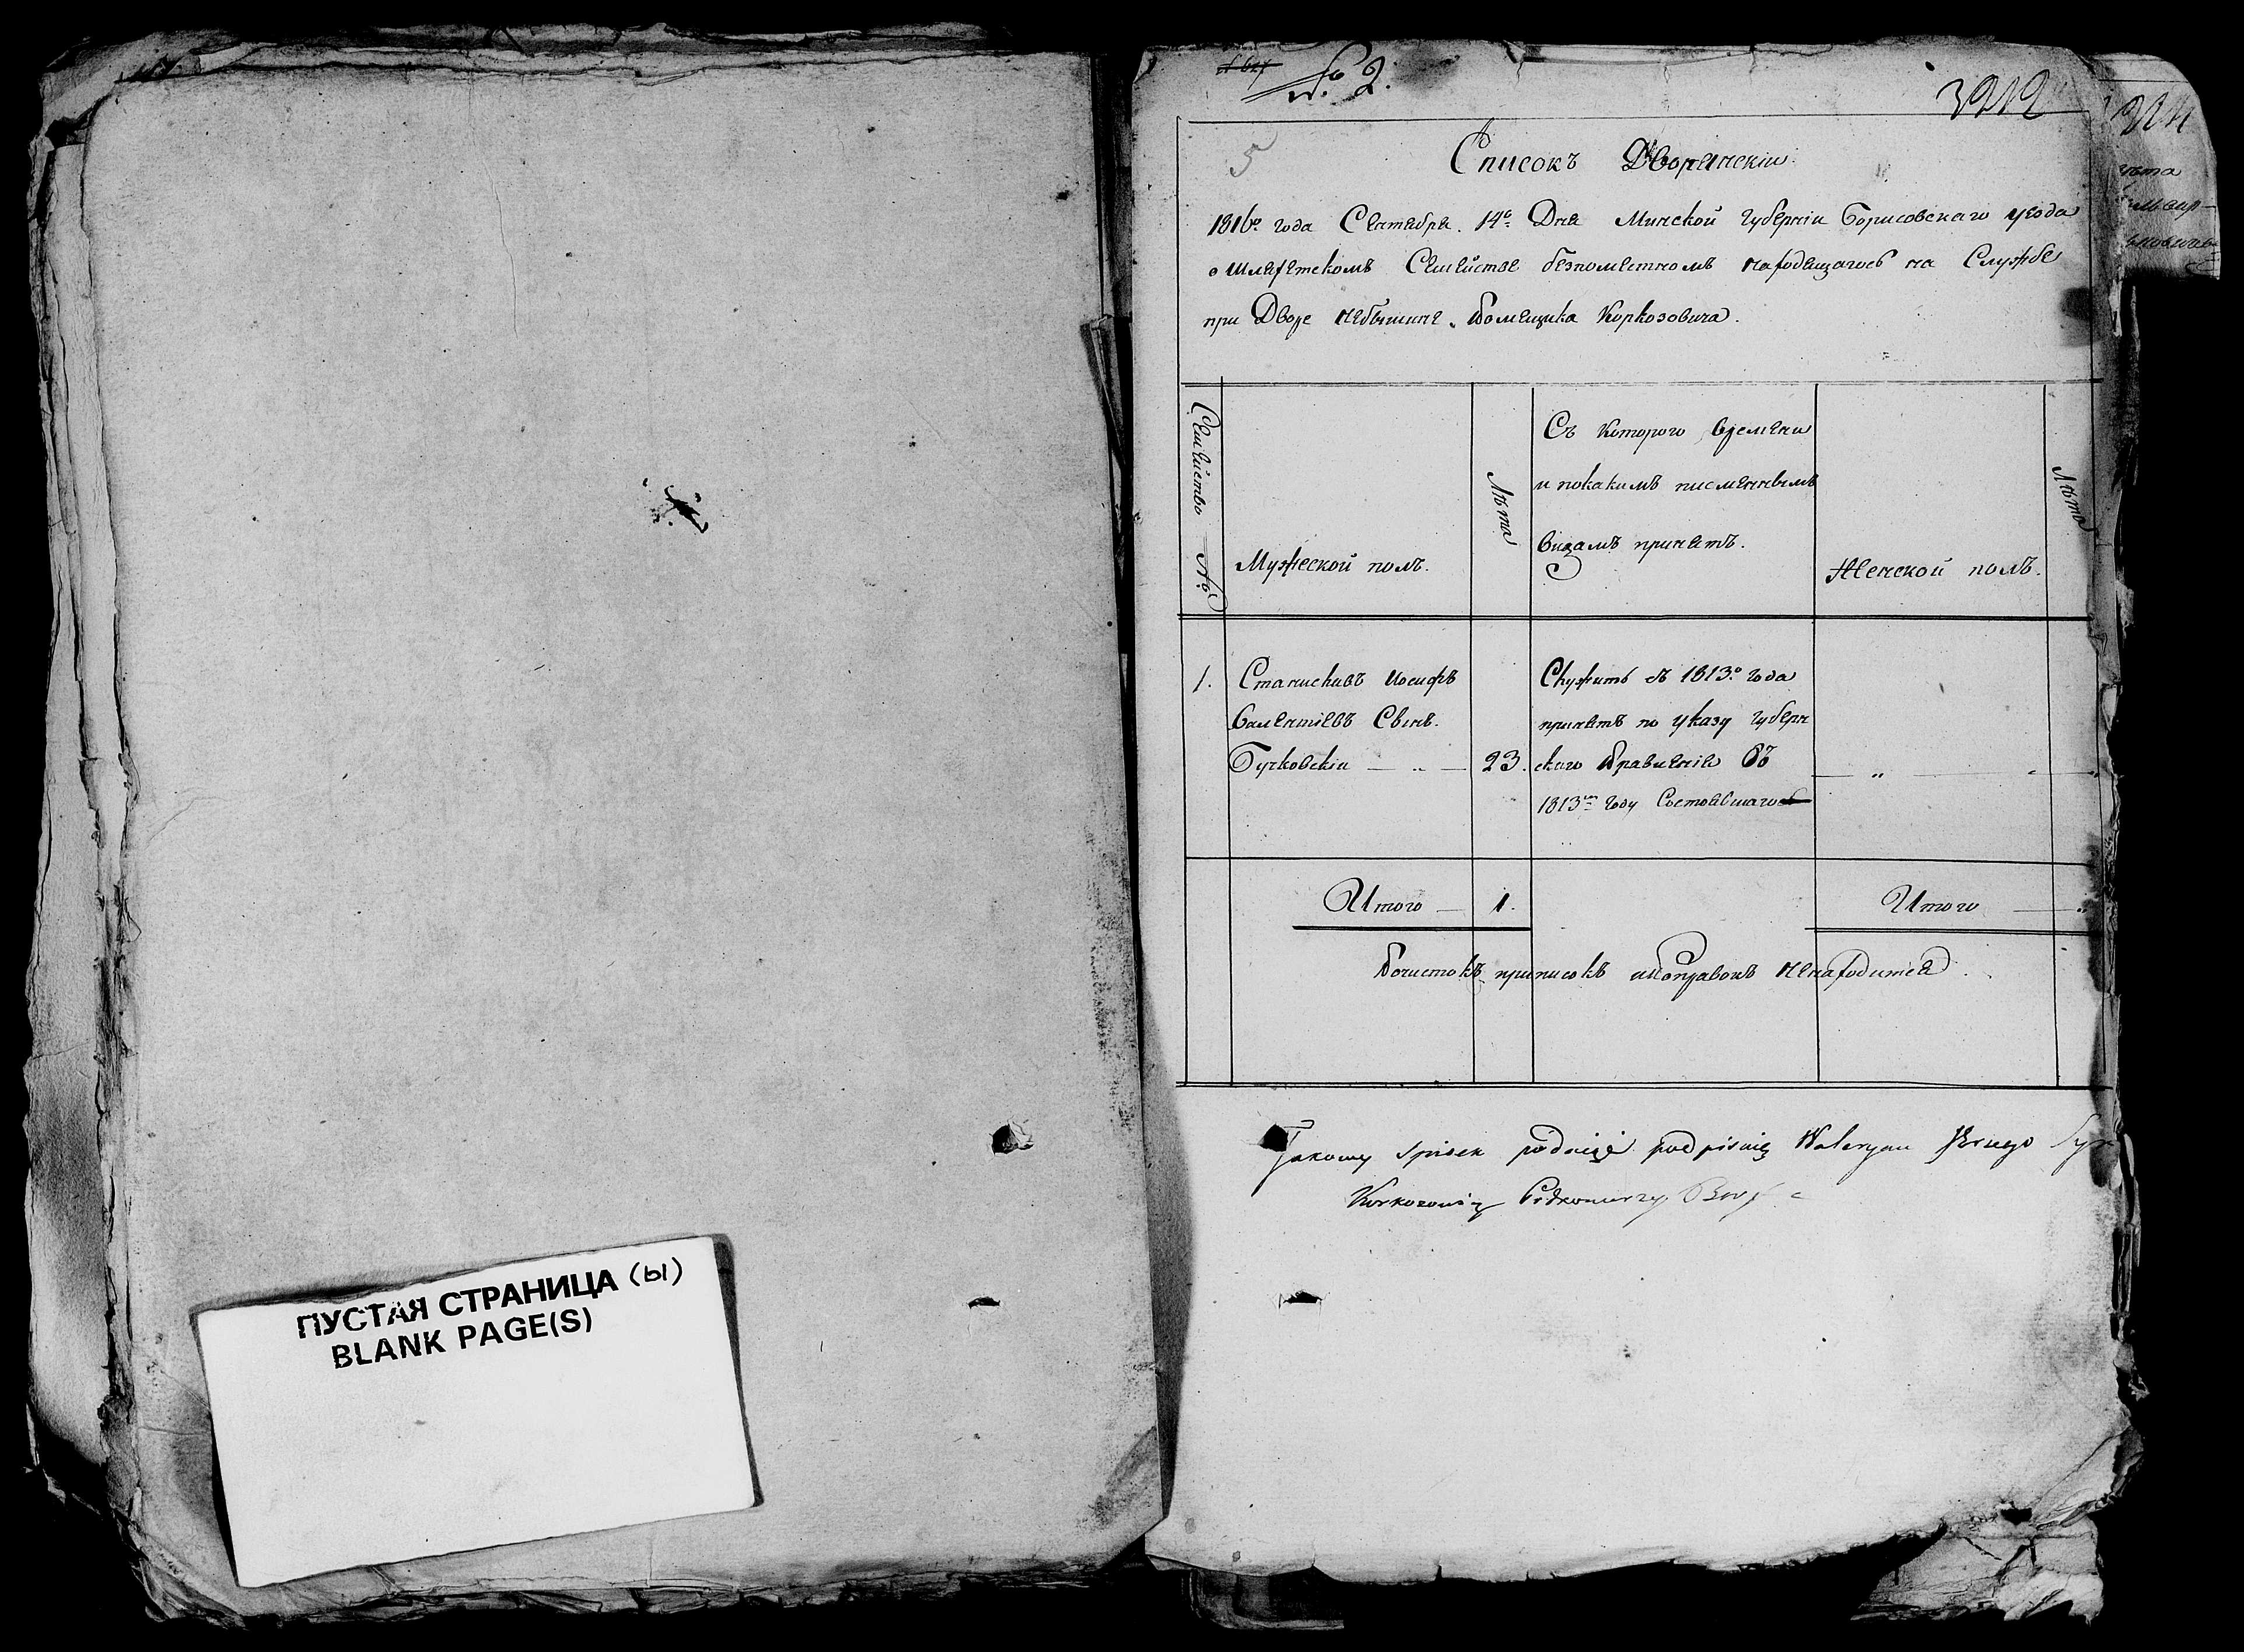 № 2.
3212
5
Списокъ Дворянскіи
1816го года Сентября 14го Дня Минской Губерніи Борисовскаго уезда
о шляхетскомъ Семействе безпоместномъ находящагось на Службе
при Дворе Небышине Помещика Коркозовича.
Семейство №
Мужеской полъ.
Лѣта
Съ которого времени
и покакимъ писменнымъ
видамъ принятъ.
Женской полъ.
Лѣта
1.
Станиславъ Иосифъ
Валентіевъ Сынъ.
Бучковскіи
23.
Служитъ съ 1813го года
принятъ по указу Губерн
скаго Правленія въ
1813мъ году Состоявшагось
Итого 1.
Итого
Почистокъ приписокъ ипоправокъ ненаходится.
Takowy Spisek podaiąc podpisuię Waleryan Syn
Korkozowicz
ПУСТАЯ СТРАНИЦА (Ы)
BLANK PAGE(S)